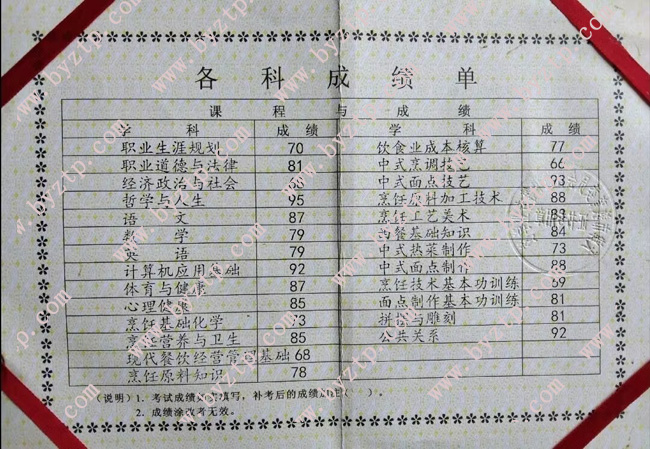 各科成绩单
课程与成绩
学科 成绩 学科 成绩
职业生涯规划 70 饮食业成本核算 77
职业道德与法律 81 中式烹调技艺 66
经济政治与社会 68 中式面点技艺 93
哲学与人生 95 烹饪原料加工技术 88
语文 87 烹饪工艺美术 83
数学 79 西餐基础知识 84
英语 79 中式热菜制作 73
计算机应用基础 92 中式面点制作 88
体育与健康 87 烹饪技术基本功训练 69
心理健康 85 面点制作基本功训练 81
烹饪基础化学 73 拼摆与雕刻 81
烹饪营养与卫生 85 公共关系 92
现代餐饮经营管理基础 68
烹饪原料知识 78
(说明) 1. 考试成绩如实填写，补考后的成绩加注( )。
2. 成绩涂改考无效。
www.byztp.com